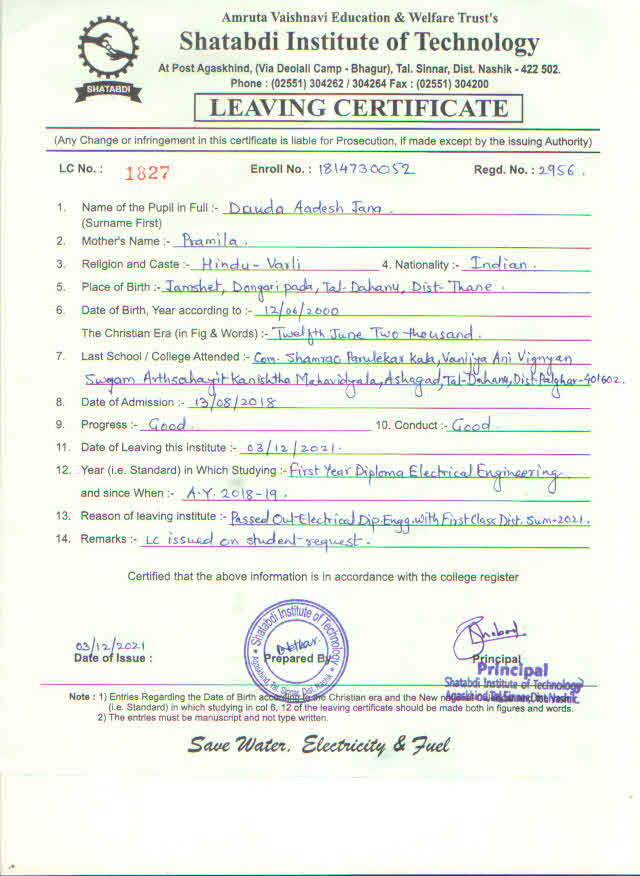 Amruta Vaishnavi Education & Welfare Trust's
Shatabdi Institute of Technology
SHATABDI
At Post Agaskhind, (Via Deolali Camp - Bhagur), Tal. Sinnar, Dist. Nashik - 422 502.
Phone : (02551) 304262 / 304264 Fax : (02551) 304200
LEAVING CERTIFICATE
(Any Change or infringement in this certificate is liable for Prosecution, if made except by the issuing Authority)
LC No. : 1827 Enroll No. : 1814730052 Regd. No. : 2956.
1. Name of the Pupil in Full :- Dauda Aadesh Jana.
(Surname First)
2. Mother's Name :- Pramila.
3. Religion and Caste :- Hindu-Varli 4. Nationality :- Indian.
5. Place of Birth :- Jamshet, Dongaripada, Tal-Dahanu, Dist-Thane.
6. Date of Birth, Year according to :- 12/06/2000
The Christian Era (in Fig & Words) :- Twelfth June Two thousand.
7. Last School / College Attended :- Com. Shamrao Parulekar Kala, Vanijya Ani Vignyan
Arthsahayit Kanishtha Mahavidyala, Ashagad, Tal-Dahanu, Dist Palghar-401602.
8. Date of Admission :- 13/08/2018
9. Progress :- Good. 10. Conduct :- Good.
11. Date of Leaving this institute :- 03/12/2021.
12. Year (i.e. Standard) in Which Studying :- First Year Diploma Electrical Engineering
and since When :- A.Y. 2018-19.
13. Reason of leaving institute :- Passed Out-Electrical Dip.Engg. With First Class Dist. Sum-2021.
14. Remarks :- LC issued on student request.
Certified that the above information is in accordance with the college register
03/12/2021
Date of Issue :
Shatabdi Institute of Technology
Agaskhind, Tal. Sinnar, Dist. Nashik
Prepared By
Principal
Principal
Shatabdi Institute of Technology
Agaskhind, Tal. Sinnar, Dist. Nashik.
Note : 1) Entries Regarding the Date of Birth according to the Christian era and the New
(i.e. Standard) in which studying col 6, 12 of the leaving certificate should be made both in figures and words.
2) The entries must be manuscript and not type written.
Save Water, Electricity & Fuel